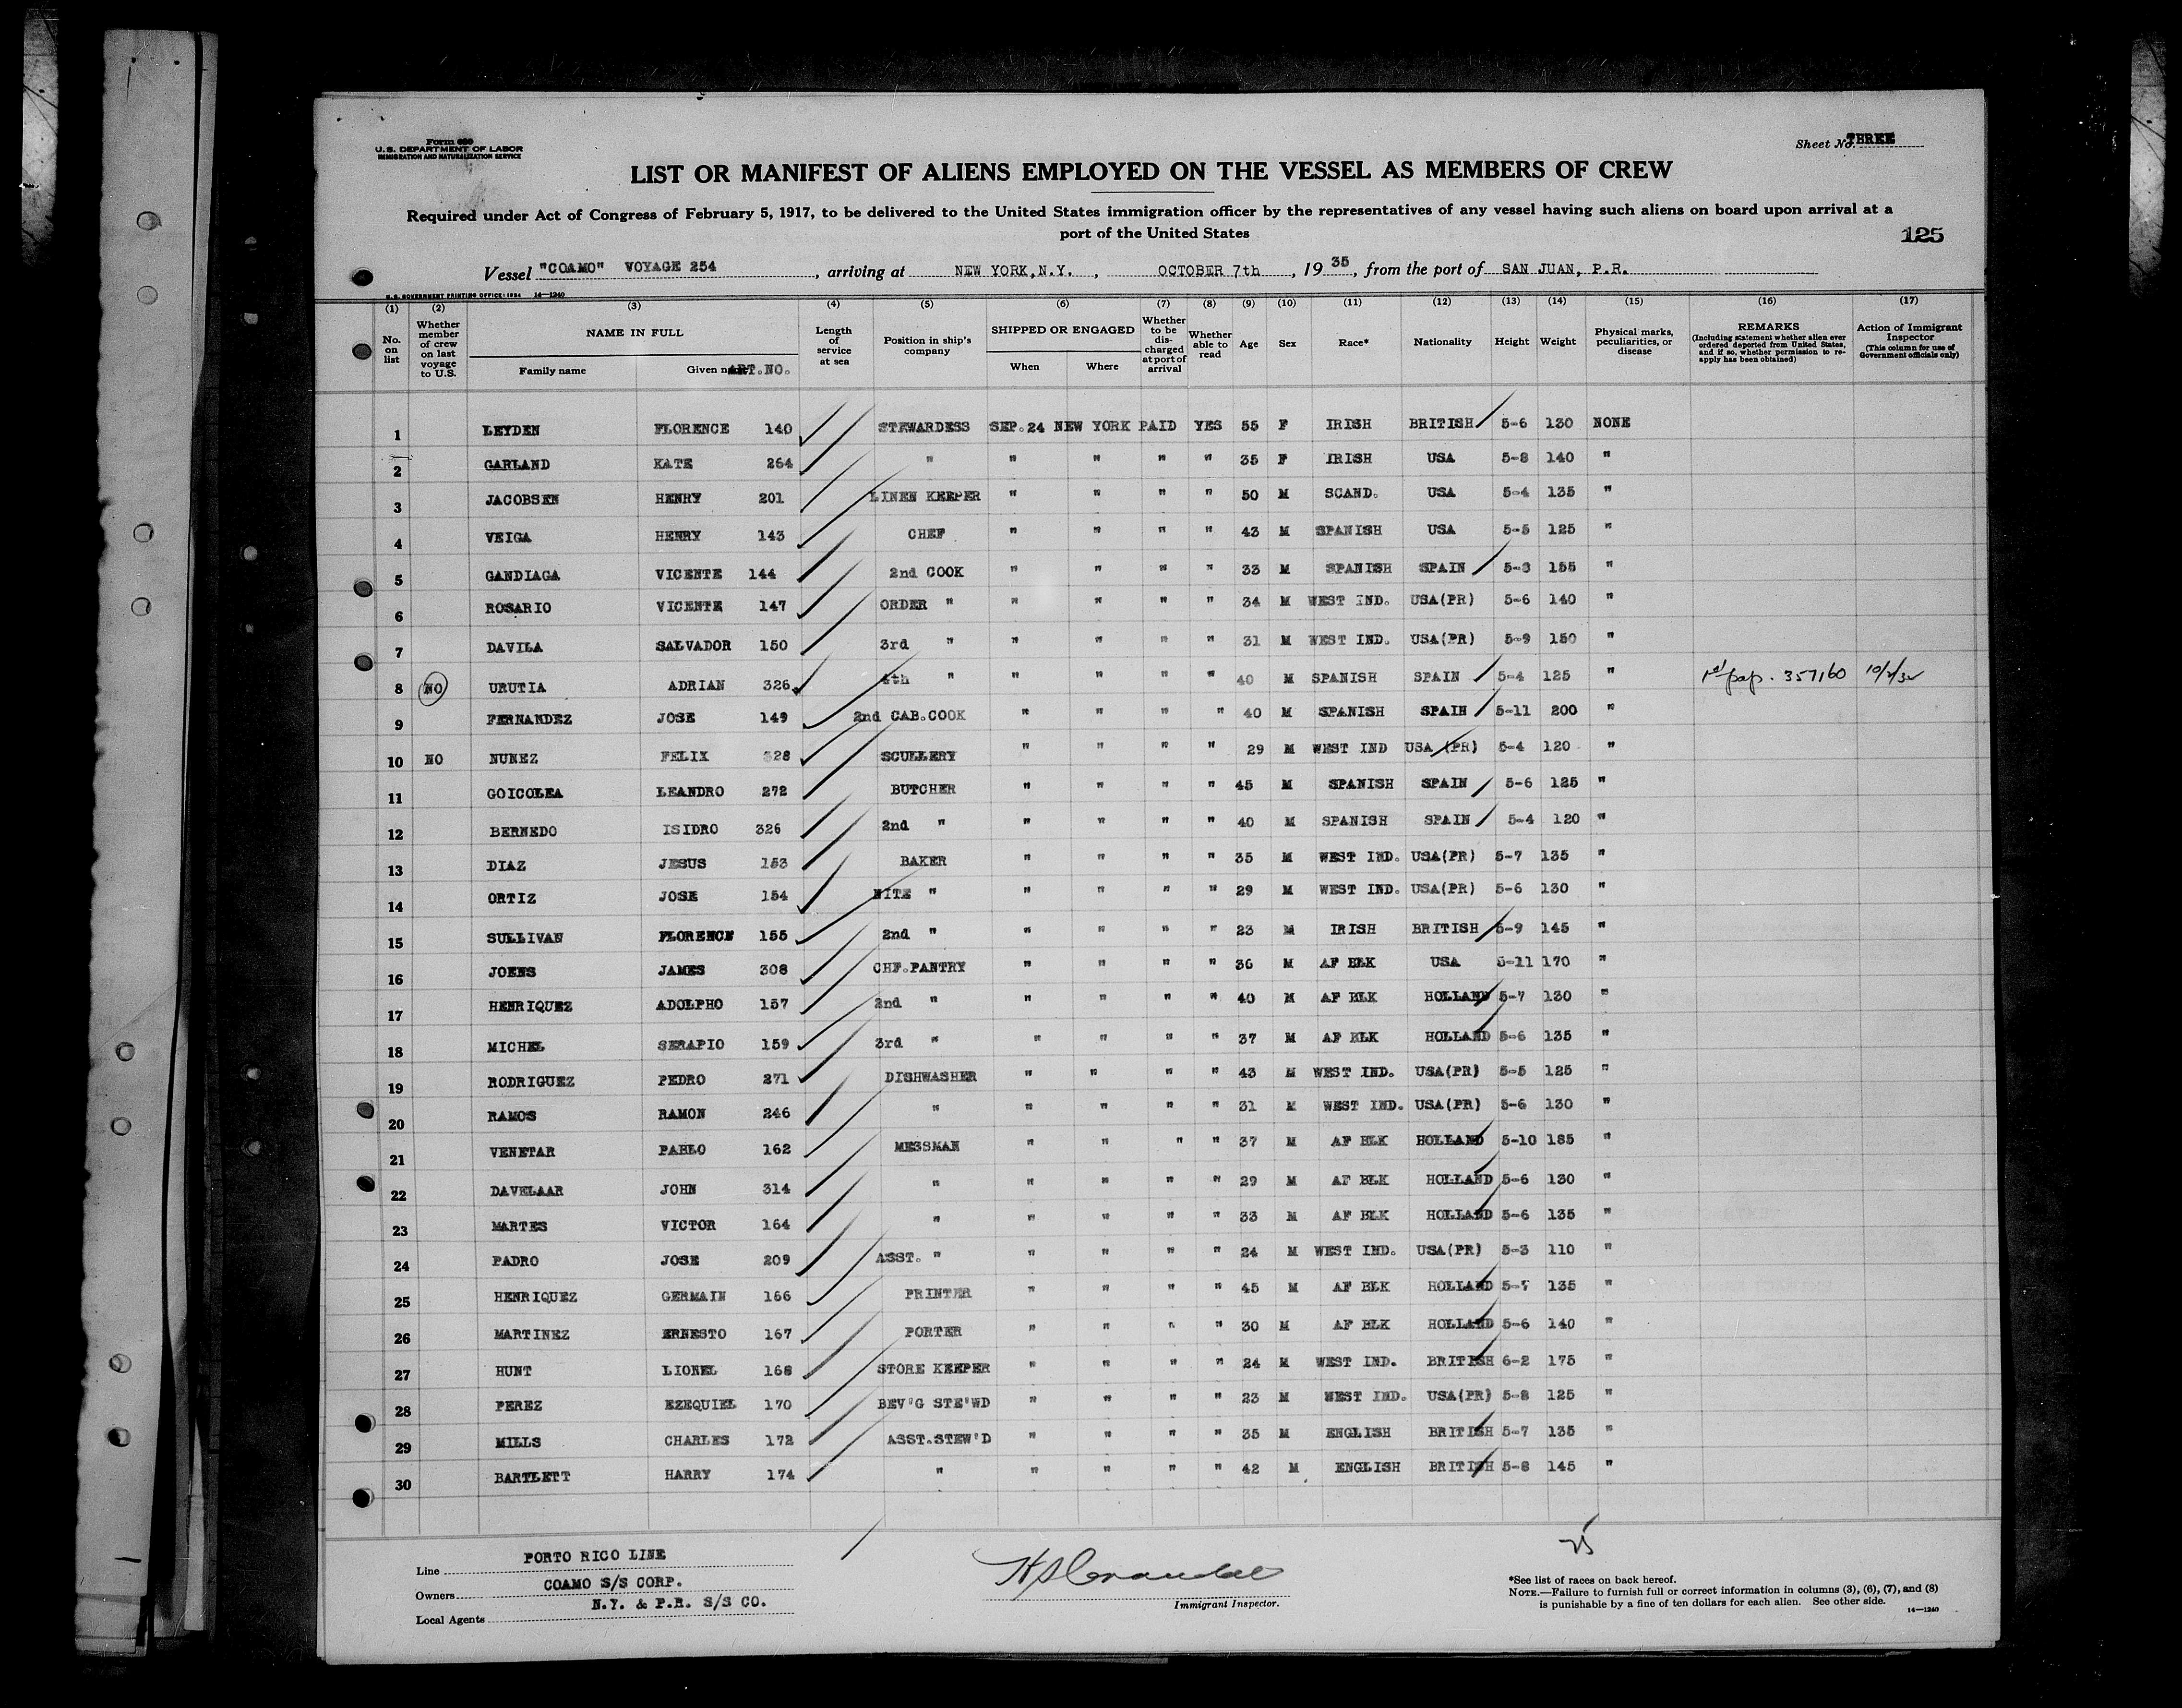 Form 680
U.S. DEPARTMENT OF LABOR
IMMIGRATION AND NATURALIZATION SERVICE
Sheet No. THREE
LIST OR MANIFEST OF ALIENS EMPLOYED ON THE VESSEL AS MEMBERS OF CREW
Required under Act of Congress of February 5, 1917, to be delivered to the United States immigration officer by the representatives of any vessel having such aliens on board upon arrival at a
port of the United States
125
Vessel "COAMO" VOYAGE 254, arriving at NEW YORK,N.Y., OCTOBER 7th, 1935, from the port of SAN JUAN, P.R.
U.S. GOVERNMENT PRINTING OFFICE: 1934 14—1240
(1) (2) (3) (4) (5) (6) (7) (8) (9) (10) (11) (12) (13) (14) (15) (16) (17)
No. on list
Whether member of crew on last voyage to U.S.
NAME IN FULL
Family name
Given name ART.NO.
Length of service at sea
Position in ship's company
SHIPPED OR ENGAGED
When
Where
Whether to be discharged at port of arrival
Whether able to read
Age
Sex
Race*
Nationality
Height
Weight
Physical marks, peculiarities, or disease
REMARKS
(Including statement whether alien ever ordered deported from United States, and if so, whether permission to reapply has been obtained)
Action of Immigrant Inspector
(This column for use of Government officials only)
1 LEYDEN FLORENCE 140 STEWARDESS SEP.24 NEW YORK PAID YES 55 F IRISH BRITISH 5-6 130 NONE
2 GARLAND KATE 264 " " " " " 35 F IRISH USA 5-8 140 "
3 JACOBSEN HENRY 201 LINEN KEEPER " " " " 50 M SCAND. USA 5-4 135 "
4 VEIGA HENRY 143 CHEF " " " " 43 M SPANISH USA 5-5 125 "
5 GANDIAGA VICENTE 144 2nd COOK " " " " 33 M SPANISH SPAIN 5-3 155 "
6 ROSARIO VICENTE 147 ORDER " " " " " 34 M WEST IND. USA(PR) 5-6 140 "
7 DAVILA SALVADOR 150 3rd " " " " " 31 M WEST IND. USA(PR) 5-9 150 "
8 NO URUTIA ADRIAN 326 4th " " " " " 40 M SPANISH SPAIN 5-4 125 " 1st pap. 357160
9 FERNANDEZ JOSE 149 2nd CAB.COOK " " " " 40 M SPANISH SPAIN 5-11 200 "
10 NO NUNEZ FELIX 328 SCULLERY " " " " 29 M WEST IND USA (PR) 5-4 120 "
11 GOICOLEA LEANDRO 272 BUTCHER " " " " 45 M SPANISH SPAIN 5-6 125 "
12 BERNEDO ISIDRO 326 2nd " " " " " 40 M SPANISH SPAIN 5-4 120 "
13 DIAZ JESUS 153 BAKER " " " " 35 M WEST IND. USA(PR) 5-7 135 "
14 ORTIZ JOSE 154 NITE " " " " " 29 M WEST IND. USA(PR) 5-6 130 "
15 SULLIVAN FLORENCE 155 2nd " " " " " 23 M IRISH BRITISH 5-9 145 "
16 JOENS JAMES 308 CHF.PANTRY " " " " 36 M AF BLK USA 5-11 170 "
17 HENRIQUEZ ADOLPHO 157 2nd " " " " " 40 M AF BLK HOLLAND 5-7 130 "
18 MICHEL SERAPIO 159 3rd " " " " " 37 M AF BLK HOLLAND 5-6 135 "
19 RODRIGUEZ PEDRO 271 DISHWASHER " " " " 43 M WEST IND. USA(PR) 5-5 125 "
20 RAMOS RAMON 246 " " " " " 31 M WEST IND. USA(PR) 5-6 130 "
21 VENETAR PABLO 162 MESSMAN " " " " 37 M AF BLK HOLLAND 5-10 185 "
22 DAVELAAR JOHN 314 " " " " " 29 M AF BLK HOLLAND 5-6 130 "
23 MARTES VICTOR 164 " " " " " 33 M AF BLK HOLLAND 5-6 135 "
24 PADRO JOSE 209 ASST. " " " " " 24 M WEST IND. USA(PR) 5-3 110 "
25 HENRIQUEZ GERMAIN 166 PRINTER " " " " 45 M AF BLK HOLLAND 5-7 135 "
26 MARTINEZ ERNESTO 167 PORTER " " " " 30 M AF BLK HOLLAND 5-6 140 "
27 HUNT LIONEL 168 STORE KEEPER " " " " 24 M WEST IND. BRITISH 6-2 175 "
28 PEREZ EZEQUIEL 170 BEV'G STE'WD " " " " 23 M WEST IND. USA(PR) 5-8 125 "
29 MILLS CHARLES 172 ASST.STEW'D " " " " 35 M ENGLISH BRITISH 5-7 135 "
30 BARTLETT HARRY 174 " " " " " 42 M ENGLISH BRITISH 5-8 145 "
Line PORTO RICO LINE
Owners COAMO S/S CORP.
Local Agents N.Y. & P.R. S/S CO.
Immigrant Inspector.
*See list of races on back hereof.
NOTE.—Failure to furnish full or correct information in columns (3), (6), (7), and (8)
is punishable by a fine of ten dollars for each alien. See other side.
14—1240